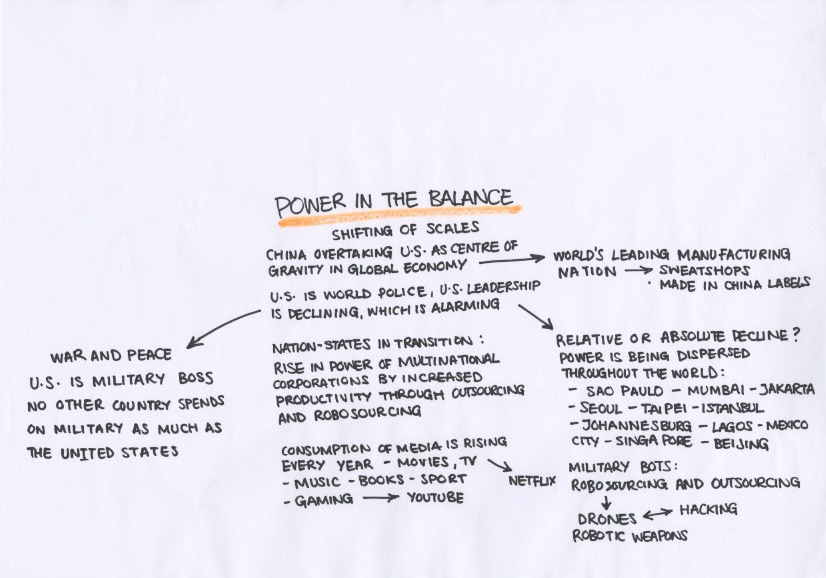 POWER IN THE BALANCE
SHIFTING OF SCALES
CHINA OVERTAKING U.S. AS CENTRE OF
GRAVITY IN GLOBAL ECONOMY
WORLD'S LEADING MANUFACTURING
NATION → SWEATSHOPS
· MADE IN CHINA LABELS
U.S. IS WORLD POLICE, U.S. LEADERSHIP
IS DECLINING, WHICH IS ALARMING
WAR AND PEACE
U.S. IS MILITARY BOSS
NO OTHER COUNTRY SPENDS
ON MILITARY AS MUCH AS
THE UNITED STATES
NATION-STATES IN TRANSITION:
RISE IN POWER OF MULTINATIONAL
CORPORATIONS BY INCREASED
PRODUCTIVITY THROUGH OUTSOURCING
AND ROBOSOURCING
CONSUMPTION OF MEDIA IS RISING
EVERY YEAR - MOVIES, TV
- MUSIC - BOOKS - SPORT
- GAMING → YOUTUBE
NETFLIX
RELATIVE OR ABSOLUTE DECLINE?
POWER IS BEING DISPERSED
THROUGHOUT THE WORLD:
- SAO PAULO - MUMBAI - JAKARTA
- SEOUL - TAIPEI - ISTANBUL
- JOHANNESBURG - LAGOS - MEXICO
CITY - SINGAPORE - BEIJING
MILITARY BOTS:
ROBOSOURCING AND OUTSOURCING
DRONES ↔ HACKING
ROBOTIC WEAPONS